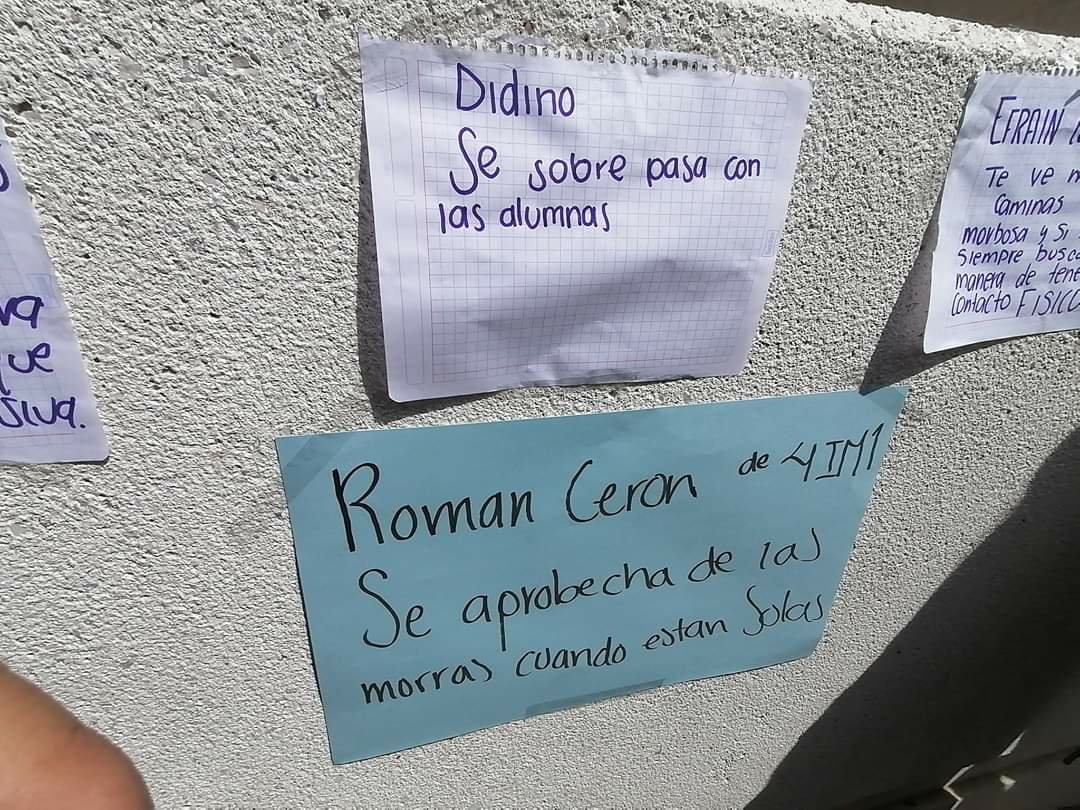 Didino
Se sobre pasa con
las alumnas
EFRAIN
Te ve
Caminas
morbosa y si
siempre
manera de
contacto FISICO
ue
Roman Ceron de 4IM1
Se aprobecha de las
morras cuando estan Solas